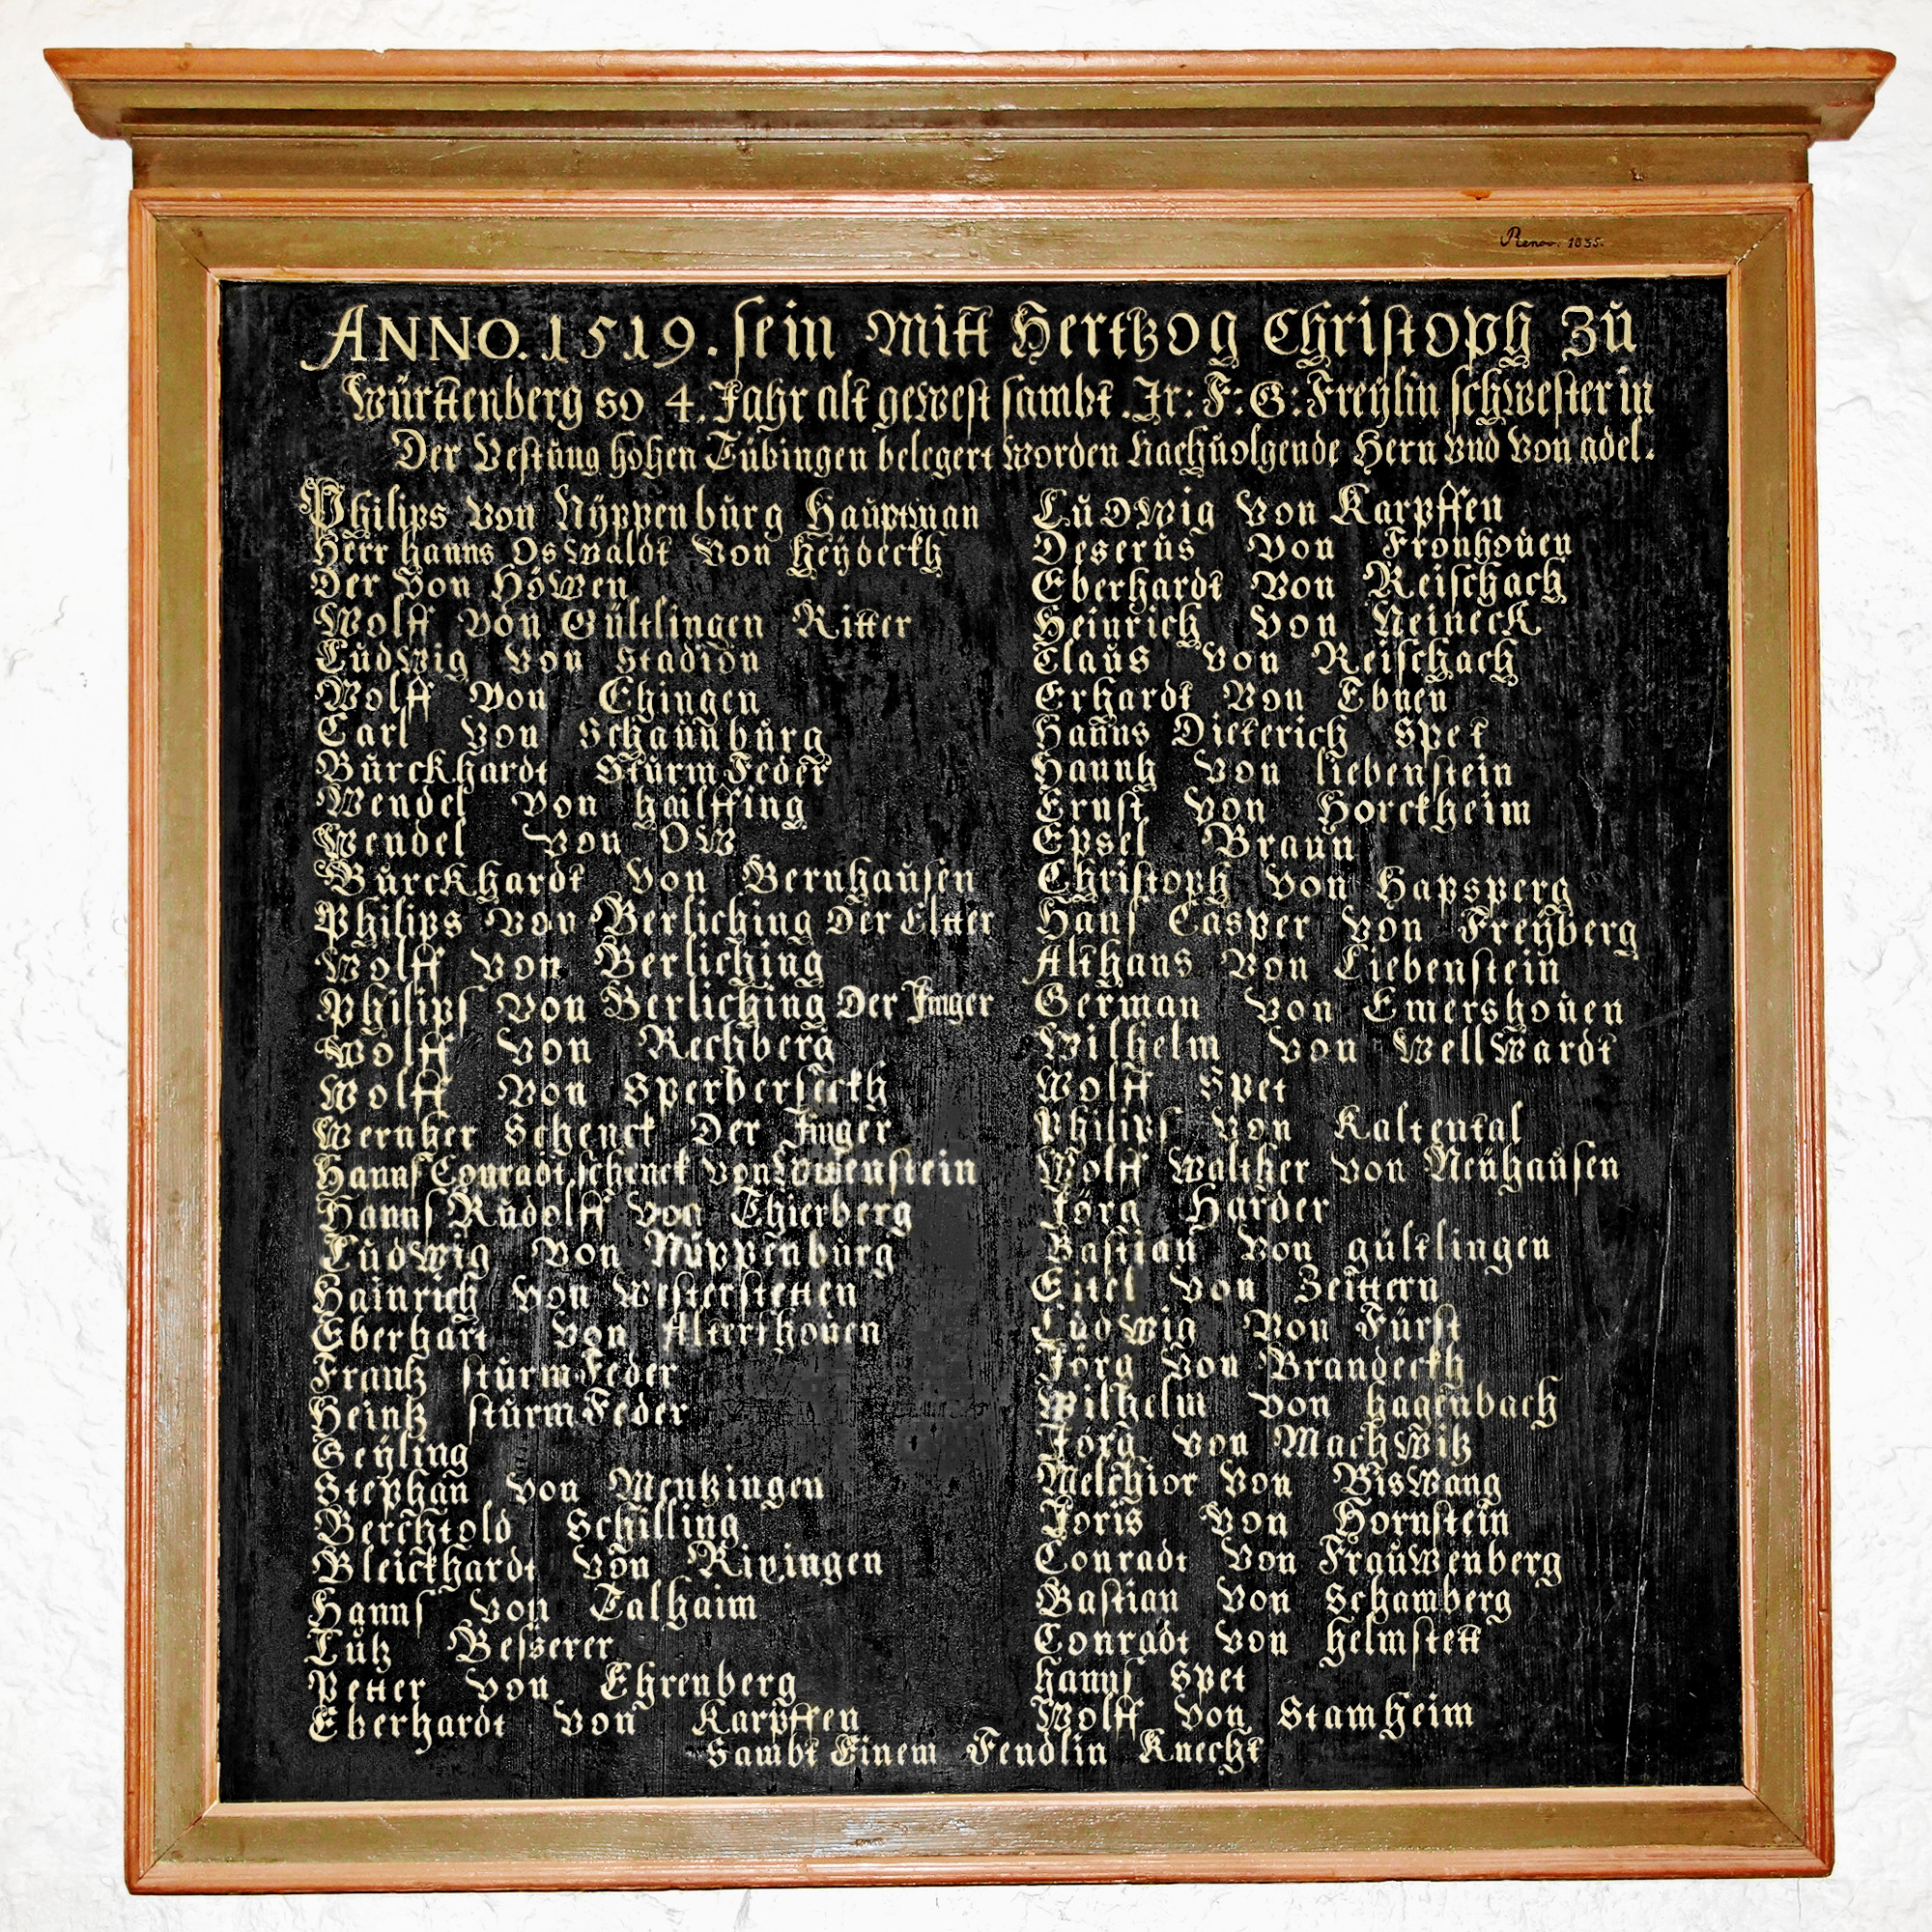 Renov. 1835.
ANNO. 1519. sein mitt Hertzog Christoph zů
Württenberg so 4. Jahr alt gewest sambt. Ir: F: G: Freylin schwester in
Der Vestůng hohen Tübingen belegert worden Nachůolgende Hern vnd von adel.
Philips von Nÿppenbůrg Haůptman
Herr Hanns Oswaldt von Heÿdeckh
Der von Höwen
Wolff von Gültlingen Ritter
Lůdwig von Stadion
Wolff von Ehingen
Carl von Schaůnbůrg
Bůrckhardt Stůrmfeder
Wendel von Hailffing
Wendel von OW
Bůrckhardt von Bernhaůsen
Philips von Berliching Der Eltter
Wolff von Berliching
Philips von Berliching Der Jnger
Wolff von Rechberg
Wolff von Sperberseckh
Wernher Schenck Der Jnger
Hanns Conradt schenck von Lowenstein
Hanns Růdolff von Thierberg
Lůdwig von Nüppenbůrg
Hainrich von Westerstetten
Eberhart von Alterthoůen
Frantz stůrmFeder
Heintz stůrmFeder
Geÿling
Stephan von Mentzingen
Berchtold Schilling
Bleickhardt von Rixingen
Hanns von Talhaim
Lůtz Besserer
Petter von Ehrenberg
Eberhardt von Karpffen
Lůdwig von Karpffen
Deserůs von Fronhoůen
Eberhardt von Reischach
Heinrich von Neineck
Claůs von Reischach
Erhardt von Ebnen
Hanns Dieterich Spet
Hanntz von liebenstein
Ernst von Horckheim
Epsel Braůn
Christoph von Hapsperg
Hans Casper von Freÿberg
Althans von Liebenstein
German von Emershoůen
Wilhelm von Wellwardt
Wolff Spet
Philips von Kaltental
Wolff Walther von Neühaůsen
Jörg Harder
Bastian von gültlingen
Eitel von Zeittern
Lůdwig von Fürst
Jörg von Brandeckh
Wilhelm von Hagenbach
Jörg von Machwitz
Melchior von Biswang
Joris von Hornstein
Conradt von Fraůwenberg
Bastian von Schamberg
Conradt von Helmstett
Hanns Spet
Wolff von Stamheim
Sambt Einem Fendlin Knecht